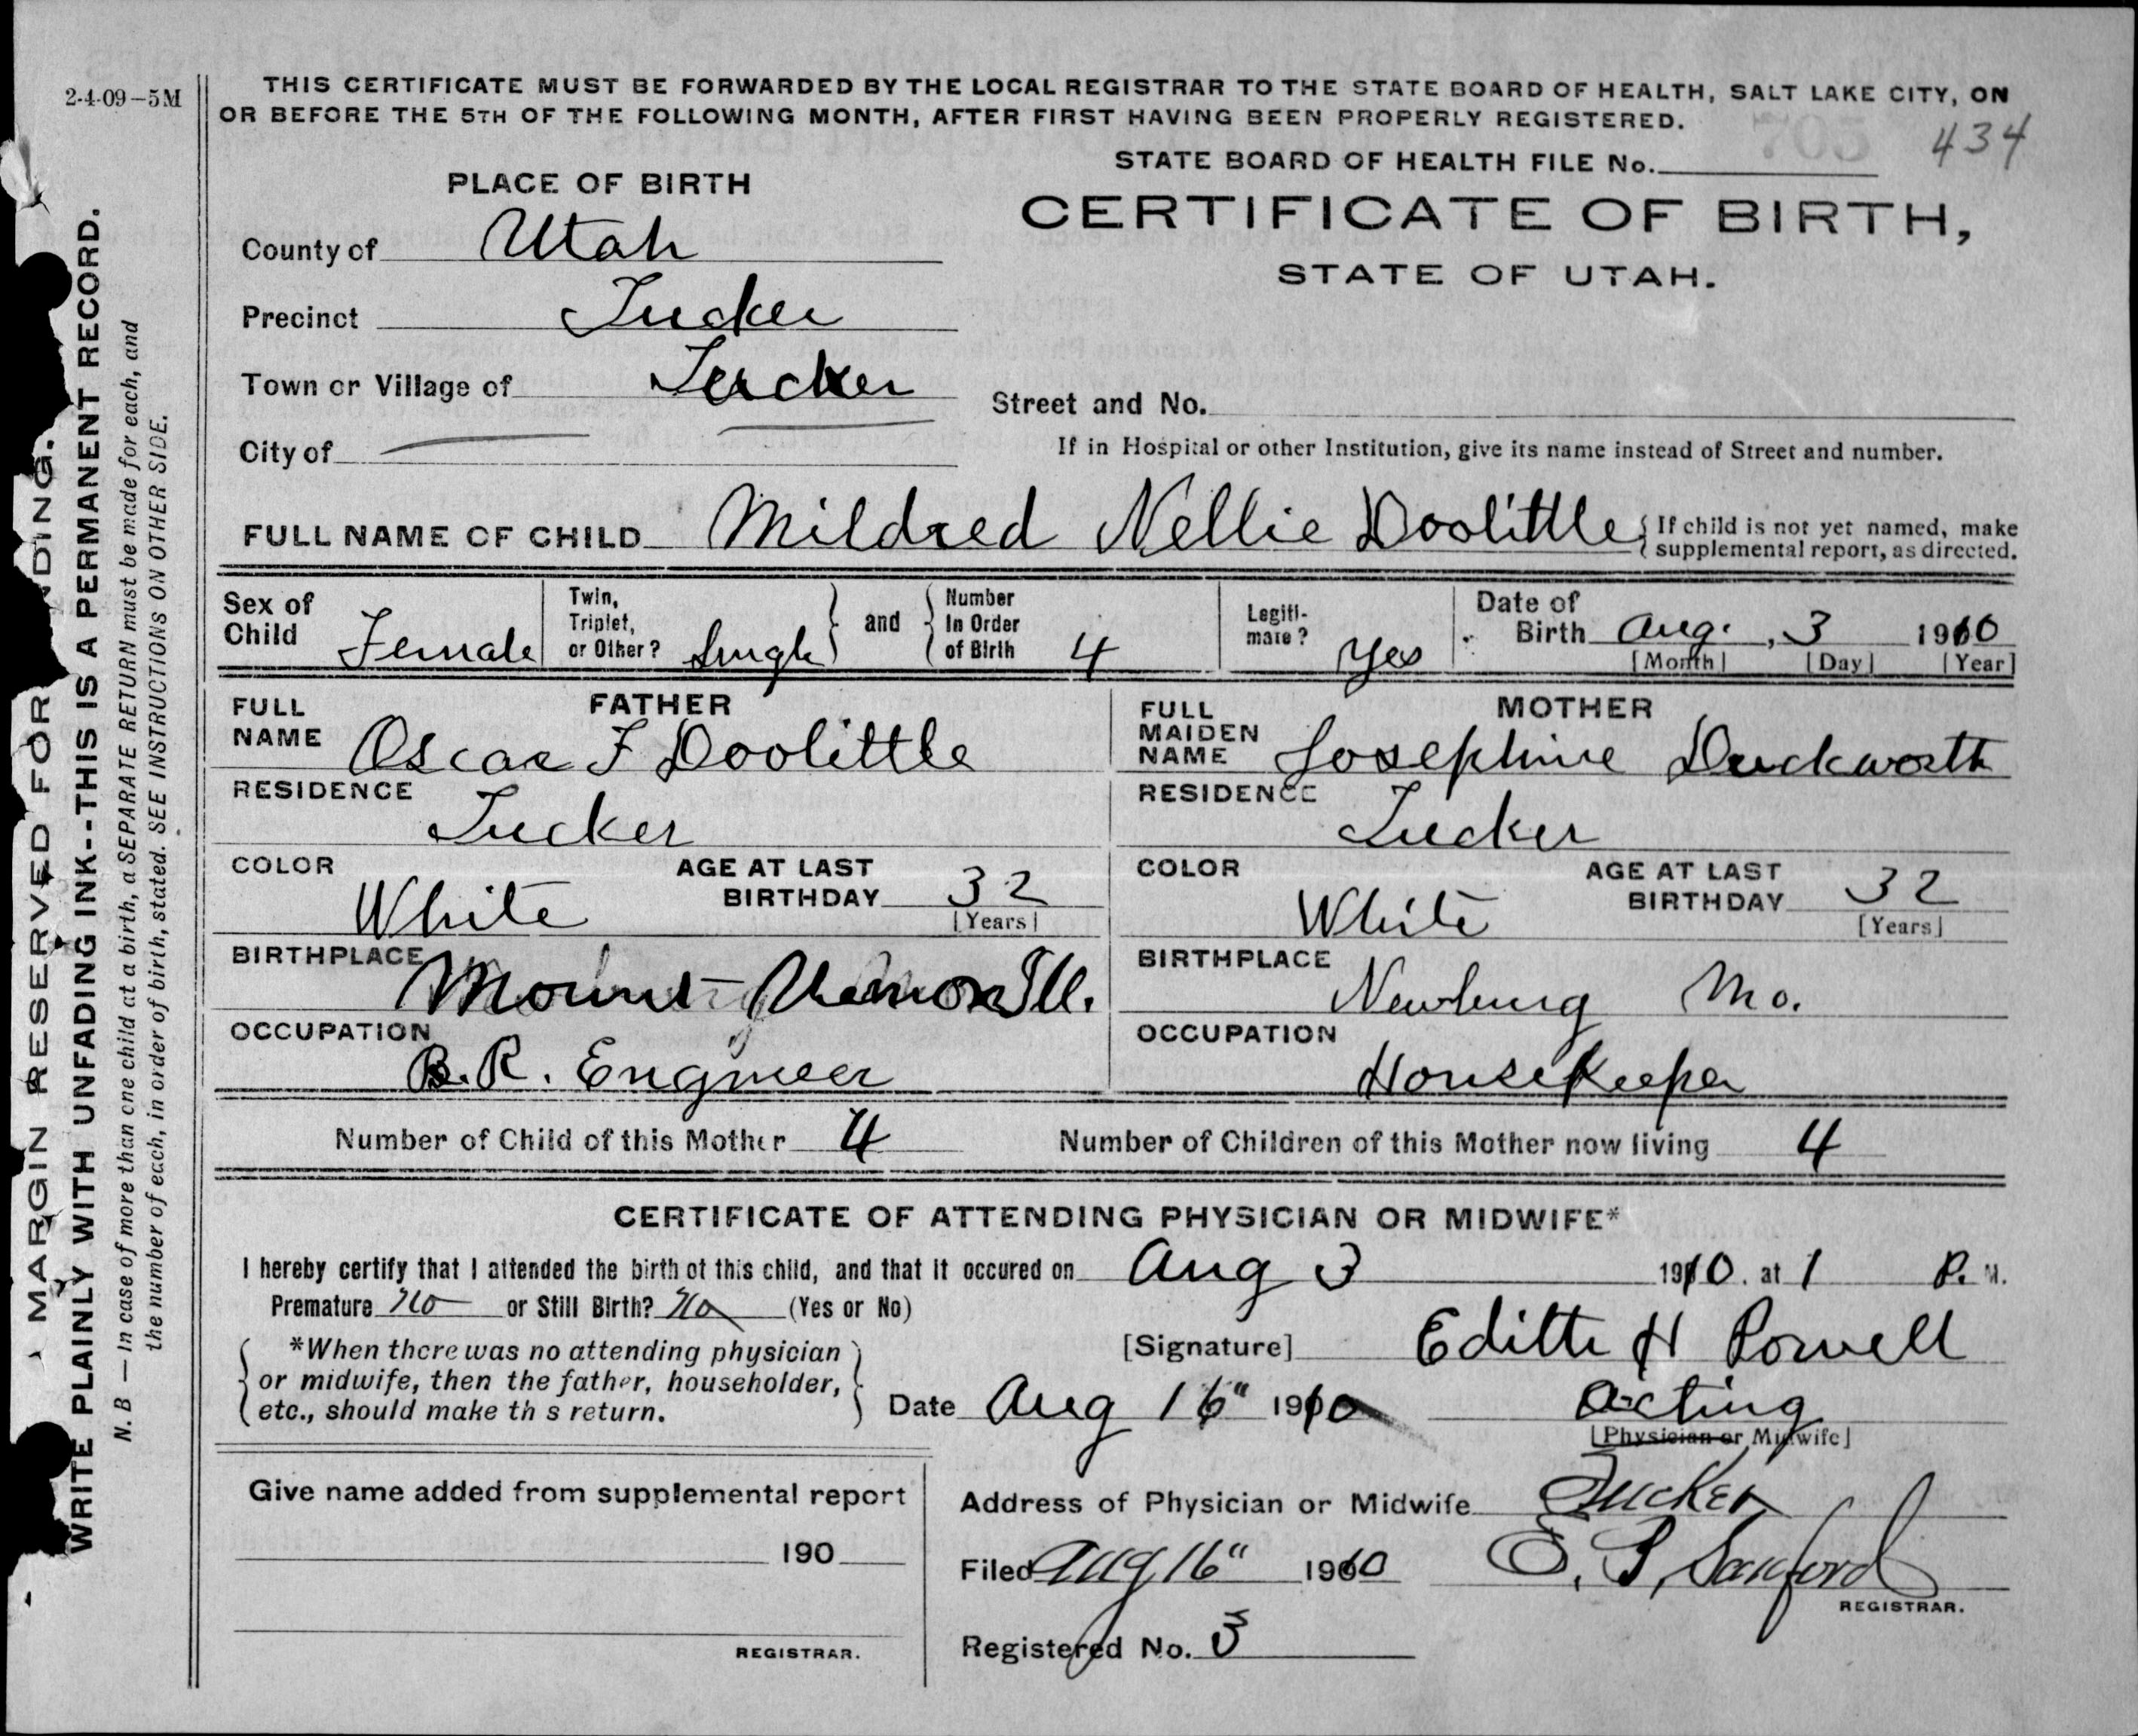 2-4-09-5M
THIS CERTIFICATE MUST BE FORWARDED BY THE LOCAL REGISTRAR TO THE STATE BOARD OF HEALTH, SALT LAKE CITY, ON
OR BEFORE THE 5TH OF THE FOLLOWING MONTH, AFTER FIRST HAVING BEEN PROPERLY REGISTERED.
434
STATE BOARD OF HEALTH FILE No.
PLACE OF BIRTH
CERTIFICATE OF BIRTH,
STATE OF UTAH.
County of Utah
Precinct Tucker
Town or Village of Tucker
Street and No.
City of
If in Hospital or other Institution, give its name instead of Street and number.
FULL NAME OF CHILD Mildred Nellie Doolittle
If child is not yet named, make
supplemental report, as directed.
Sex of Child Female
Twin, Triplet, or Other? Single and Number In Order of Birth 4
Legiti-mate? Yes
Date of Birth Aug. , 3 1910
[Month] [Day] [Year]
FATHER
FULL NAME Oscar F Doolittle
RESIDENCE
Tucker
COLOR White
AGE AT LAST BIRTHDAY 32
[Years]
BIRTHPLACE
Mount Ill.
OCCUPATION
R. Engineer
MOTHER
FULL MAIDEN NAME Josephine Duckworth
RESIDENCE
Tucker
COLOR White
AGE AT LAST BIRTHDAY 32
[Years]
BIRTHPLACE
Newburg Mo.
OCCUPATION
HouseKeeper
Number of Child of this Mother 4
Number of Children of this Mother now living 4
CERTIFICATE OF ATTENDING PHYSICIAN OR MIDWIFE*
I hereby certify that I attended the birth of this child, and that it occured on Aug 3 1910. at 1 P. M.
Premature No or Still Birth? No (Yes or No)
*When there was no attending physician
or midwife, then the father, householder,
etc., should make th s return.
[Signature] Edith H Powell
Date Aug 16" 1910
acting
[Physician or Midwife]
Give name added from supplemental report
190
REGISTRAR.
Address of Physician or Midwife Tucker
Filed Aug 16" 1910
Sanford
REGISTRAR.
Registered No. 3
MARGIN RESERVED FOR NDING.
WRITE PLAINLY WITH UNFADING INK--THIS IS A PERMANENT RECORD.
N. B — In case of more than one child at a birth, a SEPARATE RETURN must be made for each, and
the number of each, in order of birth, stated. SEE INSTRUCTIONS ON OTHER SIDE.